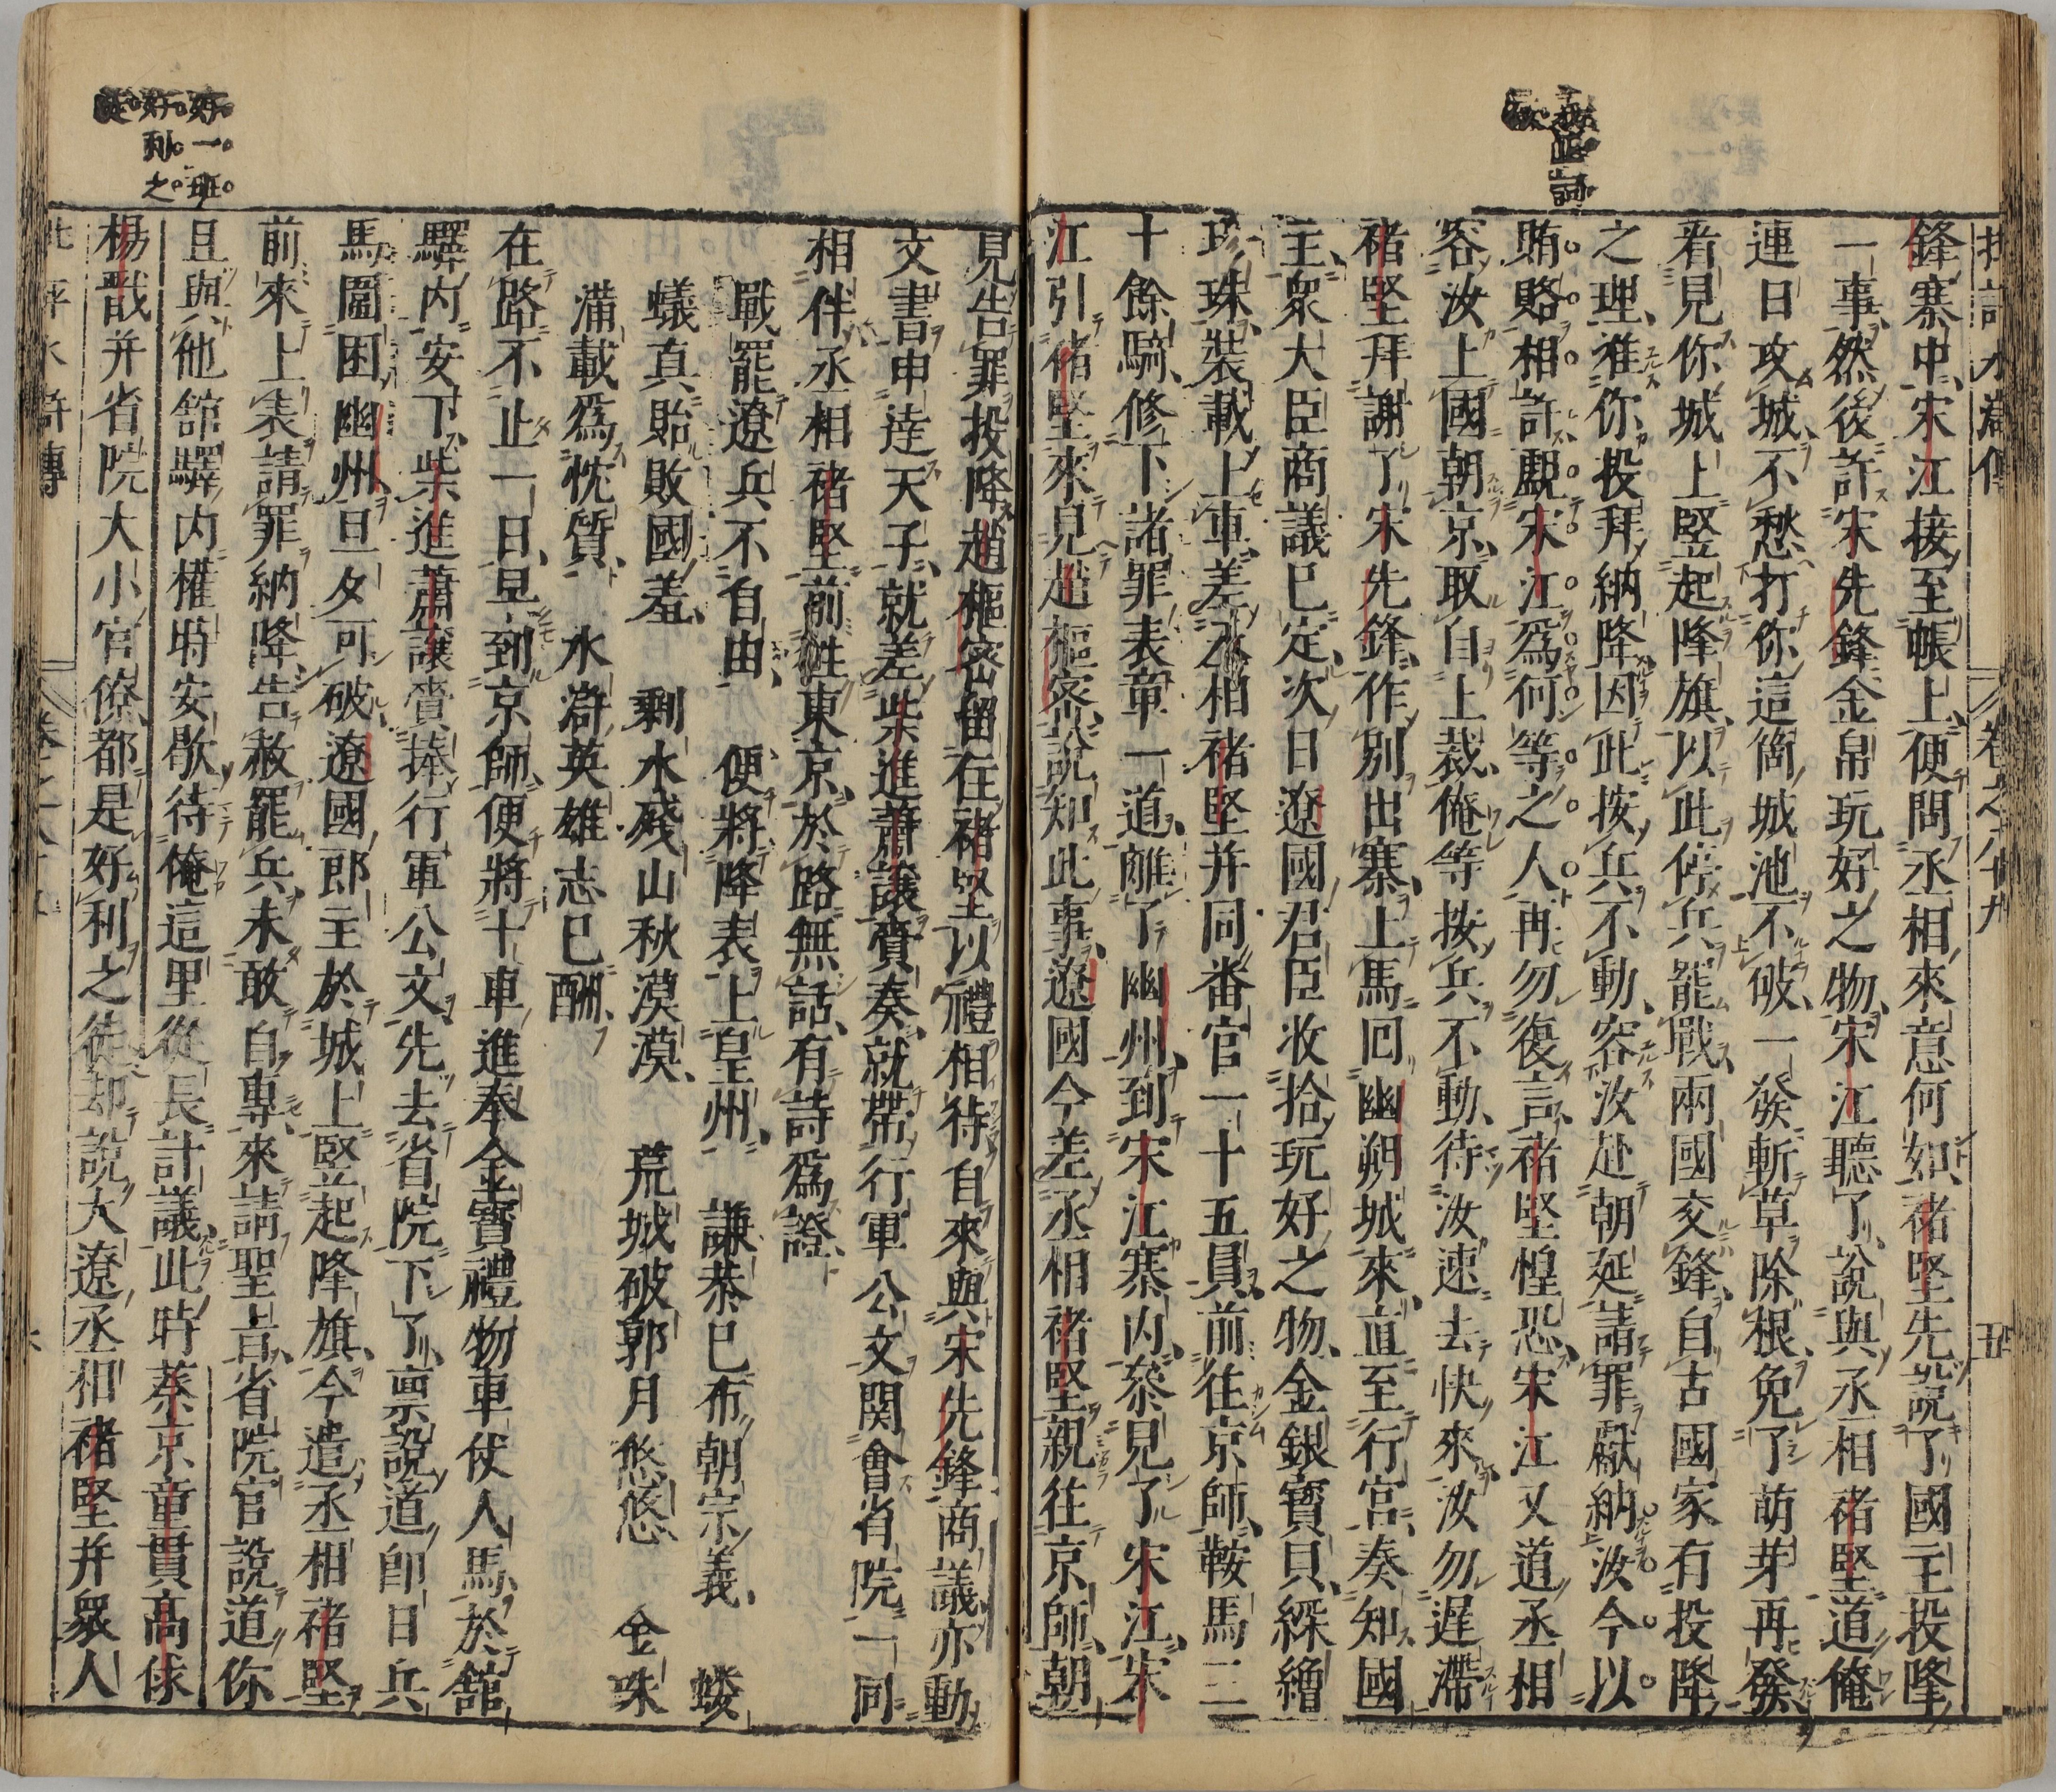 卷之八十九　五
鋒寨中宋江接至帳上便問丞相來意何如褚堅先說了國主投降
一事然後許宋先鋒金帛玩好之物宋江聽了說與丞相褚堅道俺
連日攻城不愁打你這箇城池不破一發斬草除根免了萌芽再發
看見你城上竪起降旗以此停兵罷戰兩國交鋒自古國家有投降
之理准你投拜納降因此按兵不動容汝赴朝廷請罪獻納汝今以
賄賂相許覷宋江爲何等之人再勿復言褚堅惶恐宋江又道丞相
容汝上國朝京取自上裁俺等按兵不動待汝速去快來汝勿遲滯
褚堅拜謝了宋先鋒作別出寨上馬回幽朔城來直至行宮奏知國
主衆大臣商議已定次日遼國君臣收拾玩好之物金銀寶貝綵繒
珍珠裝載上車差丞相褚堅并同番官一十五員前往京師鞍馬三
十餘騎修下諸罪表章一道離了幽州到宋江寨内參見了宋江宋
江引褚堅來見趙樞密說知此事遼國今差丞相褚堅親往京師朝
見告罪投降趙樞密留在褚堅以禮相待自來與宋先鋒商議亦動
文書申達天子就差柴進蕭讓賫奏就帶行軍公文関會省院一同
相伴丞相褚堅前往東京於路無話有詩爲證
戰罷遼兵不自由　便將降表上皇州　謙恭已布朝宗義　螻
蟻真貽敗國羞　剩水殘山秋漠漠　荒城破郭月悠悠　金珠
滿載爲忱質　水滸英雄志已酬
在路不止一日早到京師便將十車進奉金寶禮物車仗人馬於舘
驛内安下柴進蕭讓賫捧行軍公文先去省院下了稟說道即日兵
馬圍困幽州旦夕可破遼國郎主於城上竪起降旗今遣丞相褚堅
前來上表請罪納降告赦罷兵未敢自專來請聖旨省院官說道你
且與他舘驛内權時安歇待俺這里從長計議此時蔡京童貫高俅
楊戩并省院大小官僚都是好利之徒却說大遼丞相褚堅并衆人
好一班
好利之
徒